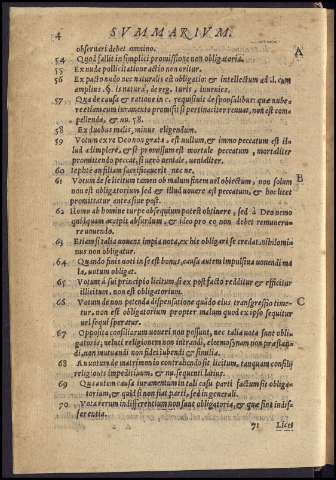 4 SVMMARIVM.
observari debet omnino.
54 Quod fallit in simplici promissione non obligatoria.
A
55 Ex nuda pollicitatione actio non oritur.
56 Ex pacto nudo nec naturalis est obligatio: & intellectum ad l. cum
amplius. §. is natura, de reg. iuris, invenies.
57 Qua de causa & ratione in c. requisivit de sponsalibus: quae nube-
re etiam cum iuramento promisit si pertinaciter renuat, non est com-
pellenda, & nu. 58.
58 Ex duobus malis, minus eligendum.
59 Votum ex re Deo non grata, est nullum, & immo peccatum est il-
lud adimplere, & si promissum est mortale peccatum, mortaliter
promittendo peccat, si vero veniale, venialiter.
60 Iephte an filiam sacrificaverit nec ne.
61 Votum de se licitum tamen ob malum finem vel obiectum, non solum
B
non est obligatorium sed & illud vovere est peccatum, & hoc licet
promittatur ante sive post.
62 Homo ab homine turpe obsequium potest obtinere, sed à Deo nemo
quidquam accepit absurdum, & ideo pro eo non debet remunera-
re vovendo.
63 Etiam si talia vovens impia nota, ex his obligari se credat, nihilomi-
nus non obligatur.
64 Quando finis voti in se est bonus, causa autem impulsiva vovendi ma
la, votum obligat.
65 Votum à sui principio licitum, si ex post facto redditur & efficitur
illicitum, non est obligatorium.
66 Votum de non petenda dispensatione quido eius transgressio time-
C
tur, non est obligatorium propter malum quod ex ipso sequitur
vel sequi speratur.
67 Opposita consiliorum voveri non possunt, nec talia nota sunt obli-
gatoria, veluti religionem non intrandi, eleemosynam non praestan-
di, non mutuandi non fideiubendi & similia.
68 An votum de matrimonio contrahendo sit licitum, tanquam consilij
religionis impeditivum, & nu. sequenti latius.
69 Qua autem causa iuramentum in tali casu parti factum sit obliga-
torium, & quid si non fiat parti, sed in generali.
70 Vota rerum indifferentium non sunt obligatoria, & quae sint indif-
ferentia.
71 Licet